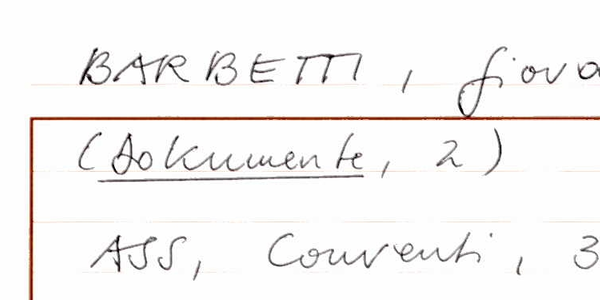 BARBETTI, Giova
(Dokumente, 2)
ASS, Conventi, 3